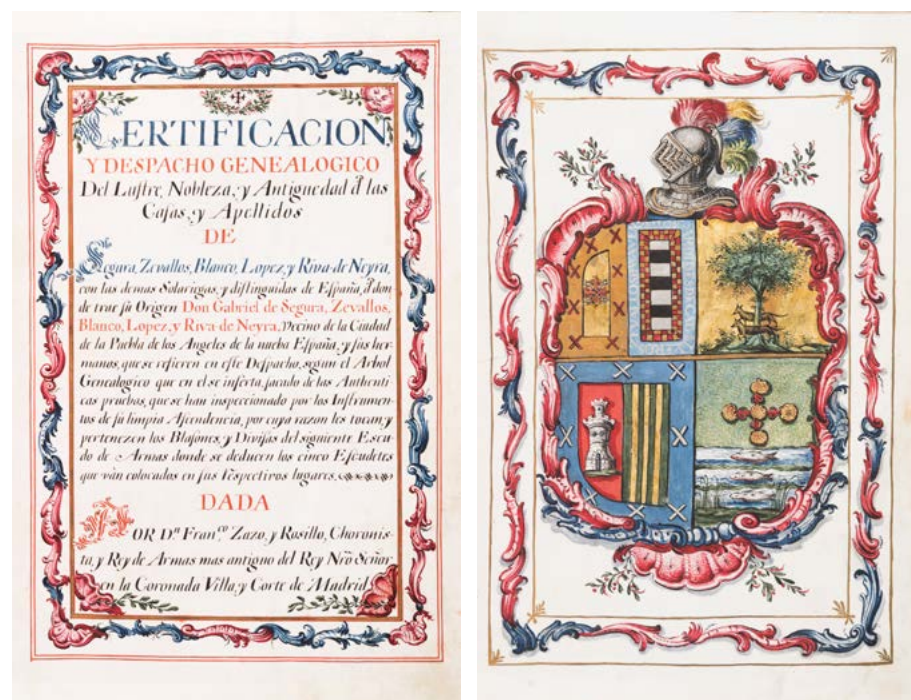 CERTIFICACION
Y DESPACHO GENEALOGICO
Del Lustre, Nobleza, y Antiguedad đ las
Casas, y Apellidos
DE
Segura, Zevallos, Blanco, Lopez, y Riva de Neyra,
con las demas Solariegas, y distinguidas de España, đ don
de trae su Origen Don Gabriel de Segura, Zevallos,
Blanco, Lopez, y Riva de Neyra, Vecino de la Ciudad
de la Puebla de los Angeles de la nueba España, y sus her
manos, que se refieren en este Despacho, segun el Arbol
Genealogico que en el se inserta, sacado de las Authenti
cas pruebas, que se han inspeccionado por los Instrumen
tos de su limpia Ascendencia, por cuya razon les tocan, y
pertenezen los Blasones, y Divisas del siguiente Escu
do de Armas donde se deducen los cinco Escudetes
que ván colocados en sus respectivos lugares.
DADA
POR Dⁿ Fran.ᶜᵒ Zazo, y Rosillo, Choronis
ta, y Rey de Armas mas antiguo del Rey Nrõ Señor
en la Coronada Villa, y Corte de Madrid